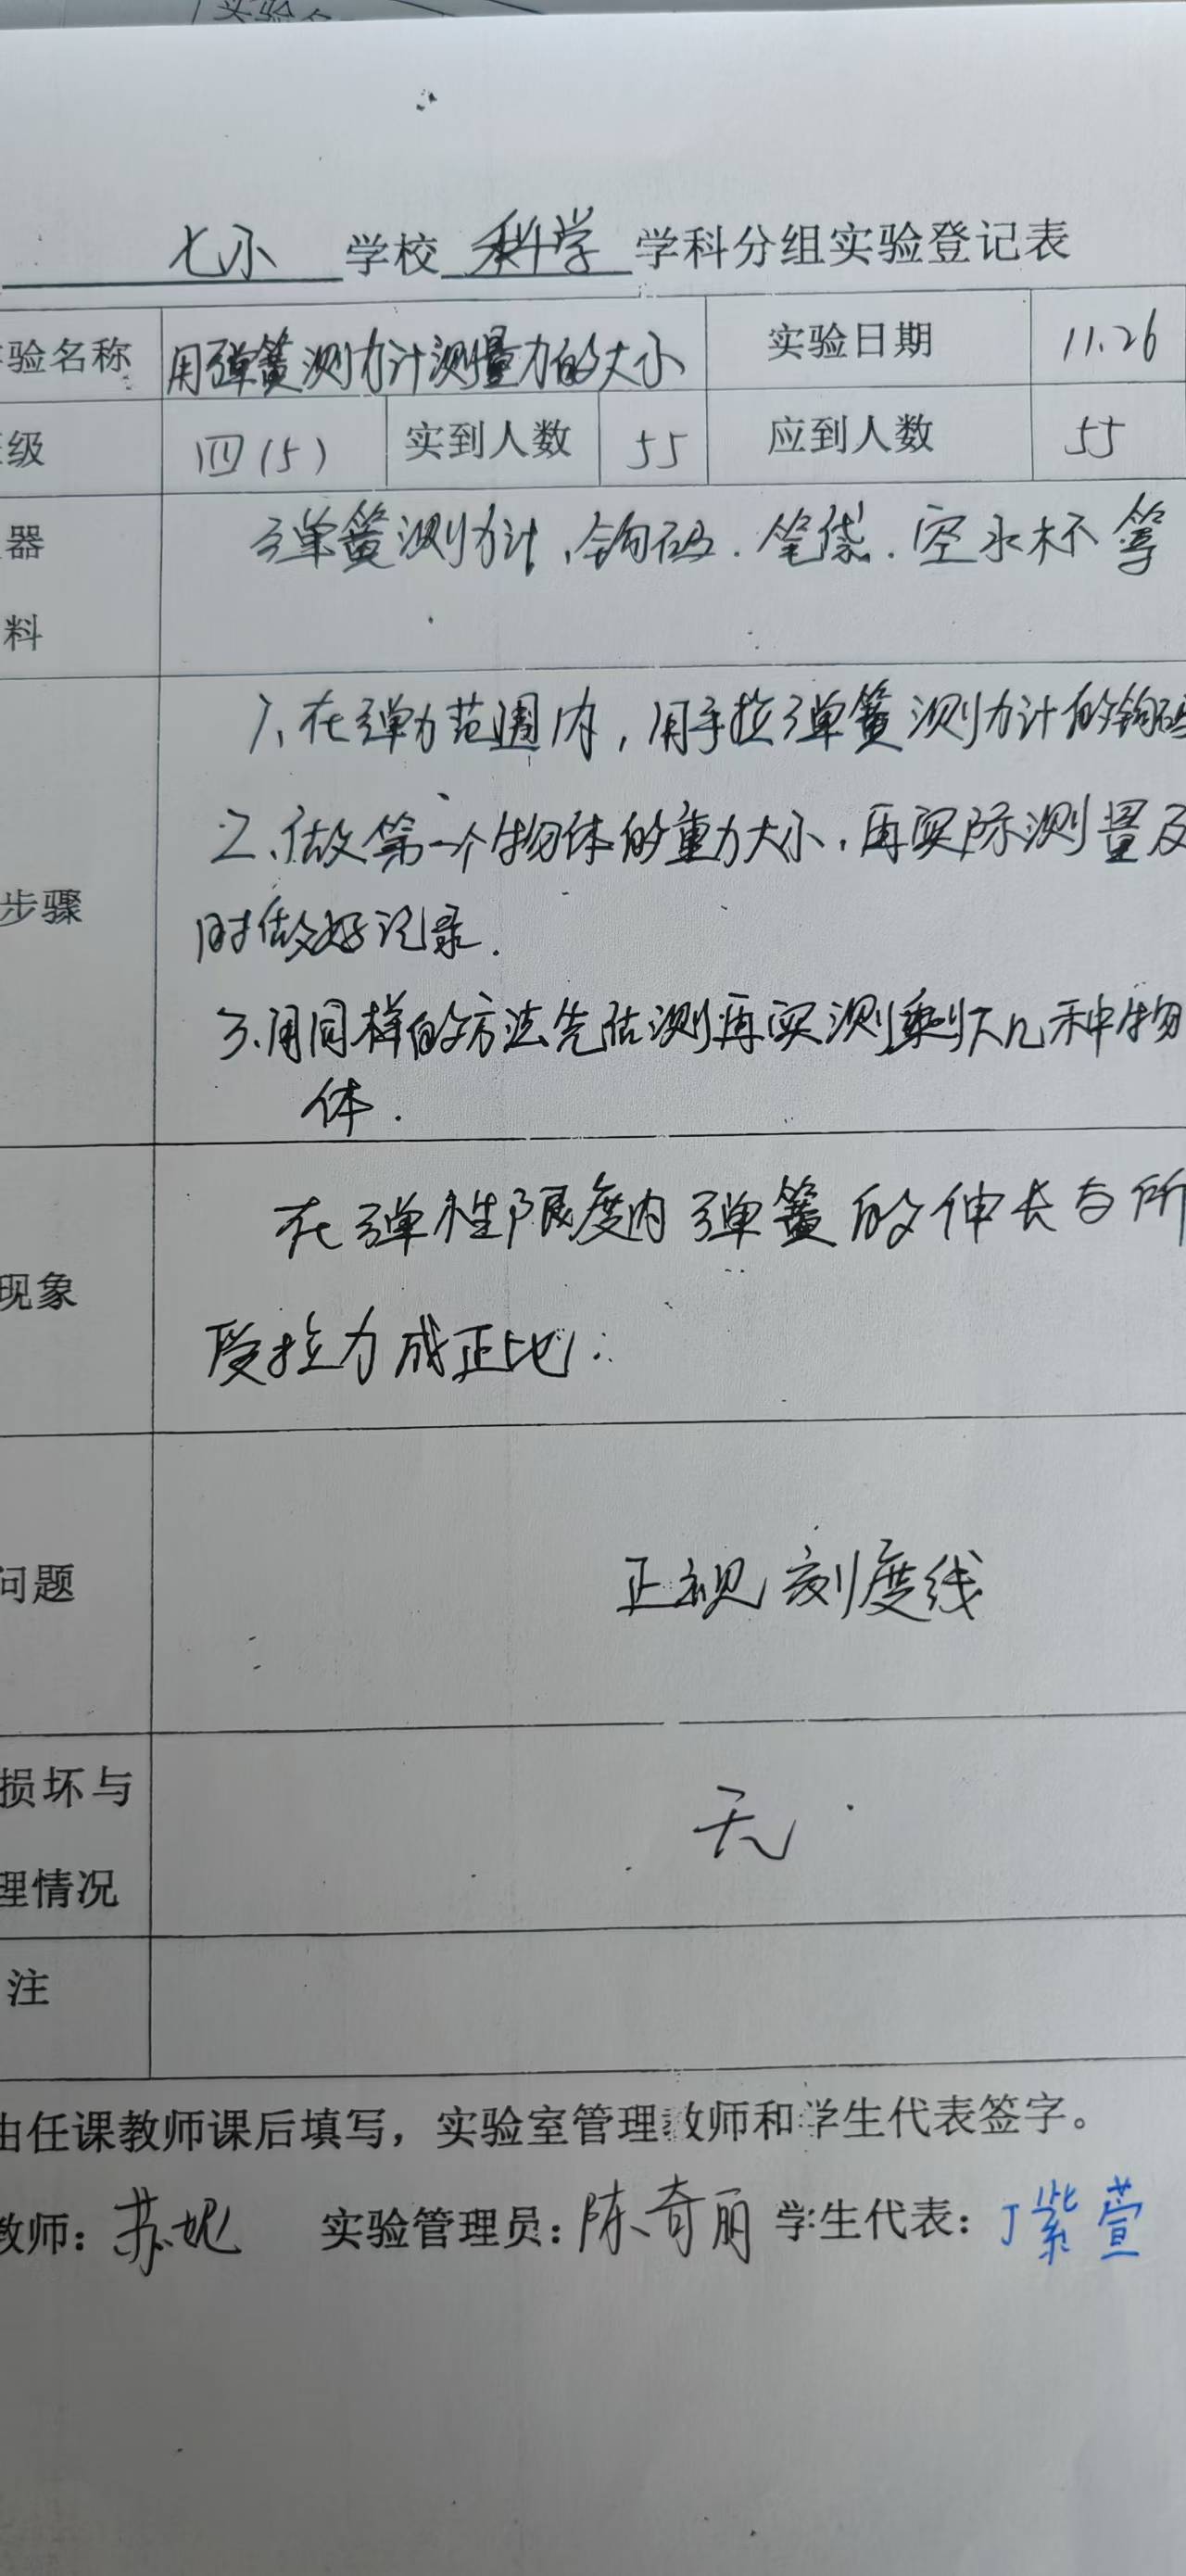 七小 学校 科学 学科分组实验登记表
验名称 用弹簧测力计测量力的大小 实验日期 11.26
级 四(5) 实到人数 55 应到人数 55
器 弹簧测力计、钩码.笔袋.空水杯等
料
1、在弹力范围内,用手拉弹簧测力计的钩码
2、做第一个物体的重力大小,再实际测量及
步骤
时做好记录.
3.用同样的方法先估测再实测剩下几种物
体.
在弹性限度内弹簧的伸长与所
现象
受拉力成正比.
问题 正视刻度线
损坏与
无.
理情况
注
由任课教师课后填写，实验室管理教师和学生代表签字。
教师: 苏妮 实验管理员: 陈奇丽 学生代表: 丁紫萱